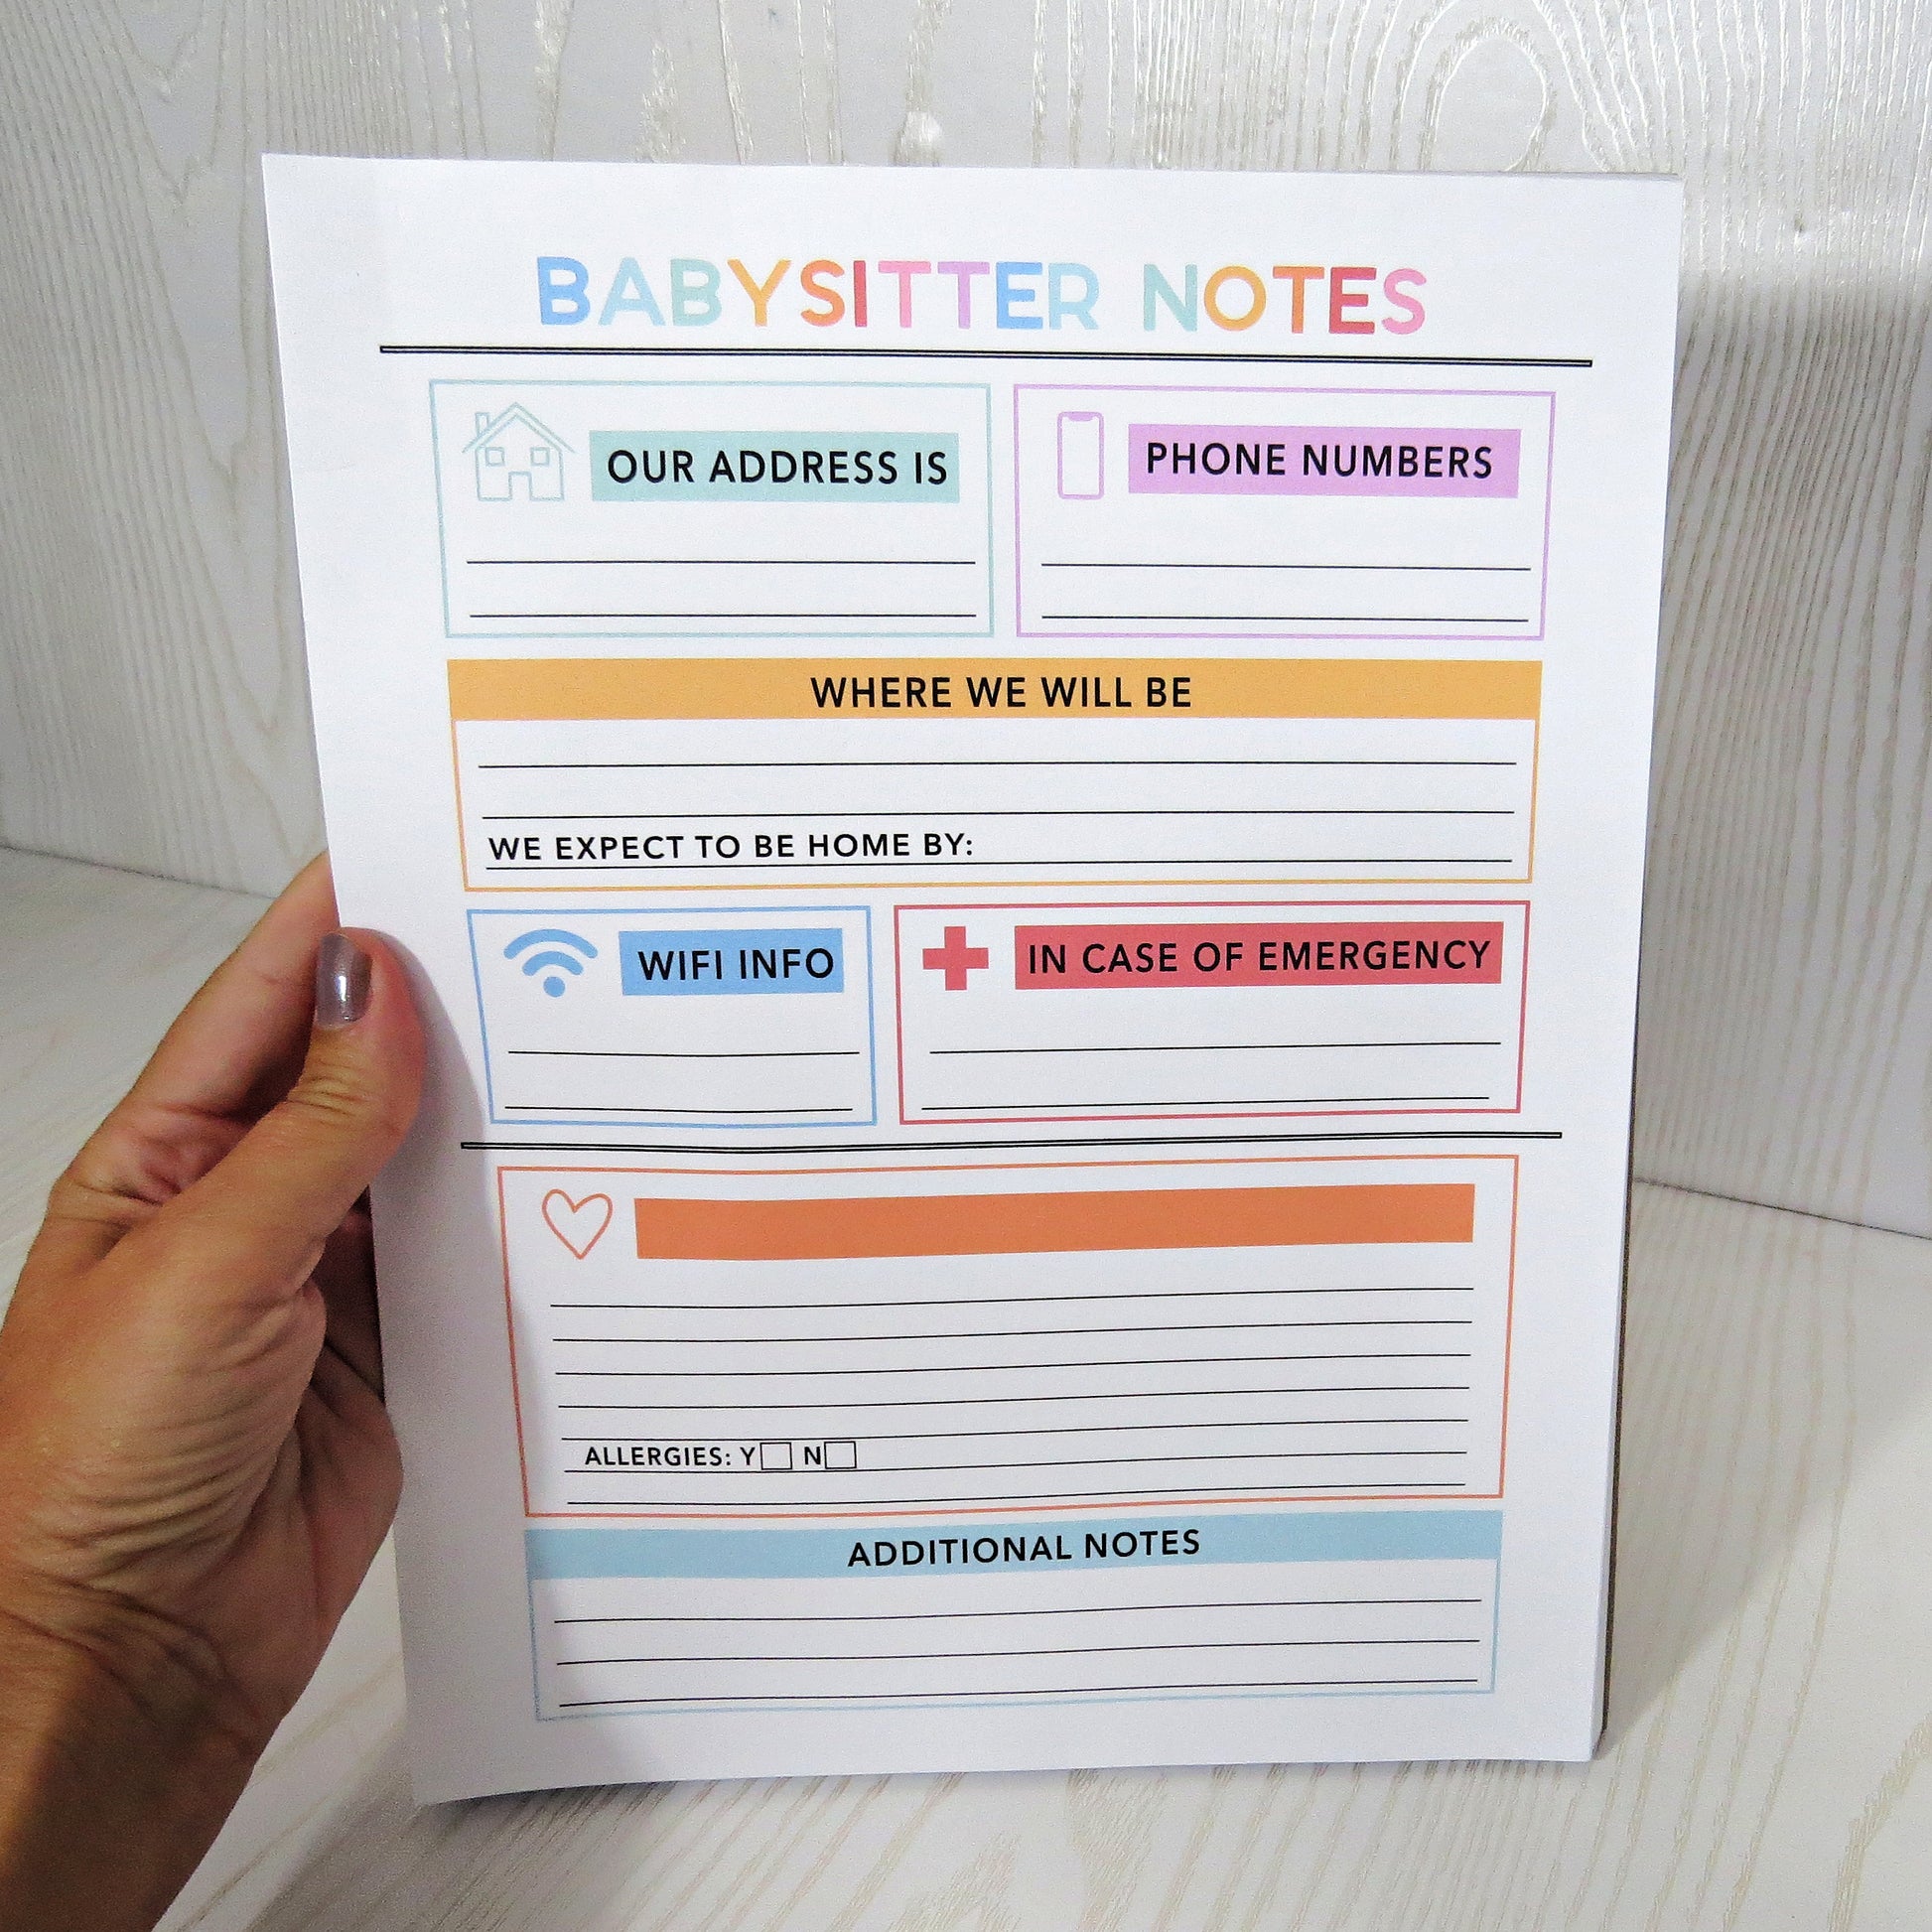 BABYSITTER NOTES
OUR ADDRESS IS
PHONE NUMBERS
WHERE WE WILL BE
WE EXPECT TO BE HOME BY:
WIFI INFO
IN CASE OF EMERGENCY
ALLERGIES: Y N
ADDITIONAL NOTES